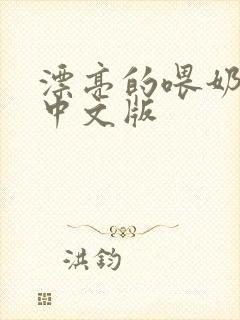 漂亮的喂奶
中文版
洪钧